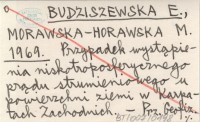 BUDZISZEWSKA E.,
MORAWSKA-HORAWSKA M.
1969. Przypadek wystąpie-
nia niskotroposferycznego
prądu strumieniowego u
powierzchni ziemi w Karpa-
tach Zachodnich. — Prz. Geofiz.